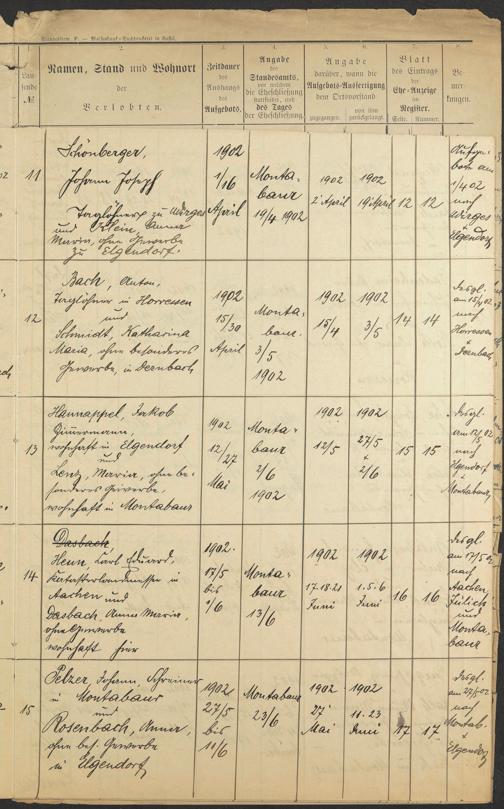 Lau-
fende
№
2.
Namen, Stand und Wohnort
der
Verlobten.
3.
Zeitdauer
des
Aushangs
des
Aufgebots.
4.
Angabe
des
Standesamts,
vor welchem
die Eheschließung
stattfindet, und
des Tages
der Eheschließung
5. 6.
Angabe
darüber, wann die
Aufgebots-Ausfertigung
dem Ortsvorstand
zugegangen.
von ihm
zurückgelangt.
7.
Blatt
des Eintrags
der
Ehe-Anzeige
im
Register.
Seite. Nummer.
8.
Be-
mer-
kungen.
11
Schönberger,
Johann Joseph
Taglöhner zu Wirges
und Klein, Anna
Maria, ohne Gewerbe
zu Elgendorf.
1902
1/16
April
Monta-
baur
19/4 1902
1902
2 April
1902
19 April
12
12
1/4 02
nach
Wirges
Elgendorf
12
Bach, Anton,
Taglöhner in Horressen
und
Schmidt, Katharina
Maria, ohne besonderes
Gewerbe, in Dernbach
1902
15/30
April
Monta-
baur
3/5
1902
1902
15/4
1902
3/5
14
14
desgl.
am 15/4 02
nach
Horressen
Dernbach
13
Hannappel, Jakob
Zimmermann,
wohnhaft in Elgendorf
und
Lenz, Maria, ohne be-
sonderes Gewerbe,
wohnhaft in Montabaur
1902
12/27
Mai
Monta-
baur
2/6
1902
1902
12/5
1902
27/5
2/6
15
15
desgl.
am 12/5 02
nach
Elgendorf
Montabaur
14
Dasbach
Henn, Carl Eduard,
in
Aachen und
Dasbach, Anna Maria,
ohne Gewerbe
wohnhaft hier
1902.
17/5
bis
1/6
Monta-
baur
13/6
1902
17.18.21
Juni
1902
1.5.6
Juni
16
16
desgl.
am 17/5 02
nach
Aachen,
Jülich
und
Monta-
baur
15
Pelzer, Johann, Schreiner
in Montabaur
und
Rosenbach, Anna,
ohne bes. Gewerbe
in Elgendorf
1902
27/5
bis
11/6
Montabaur
23/6
1902
27
Mai
1902
11.23
Juni
17
17
desgl.
am 27/5 02
nach
Montab.
Elgendorf